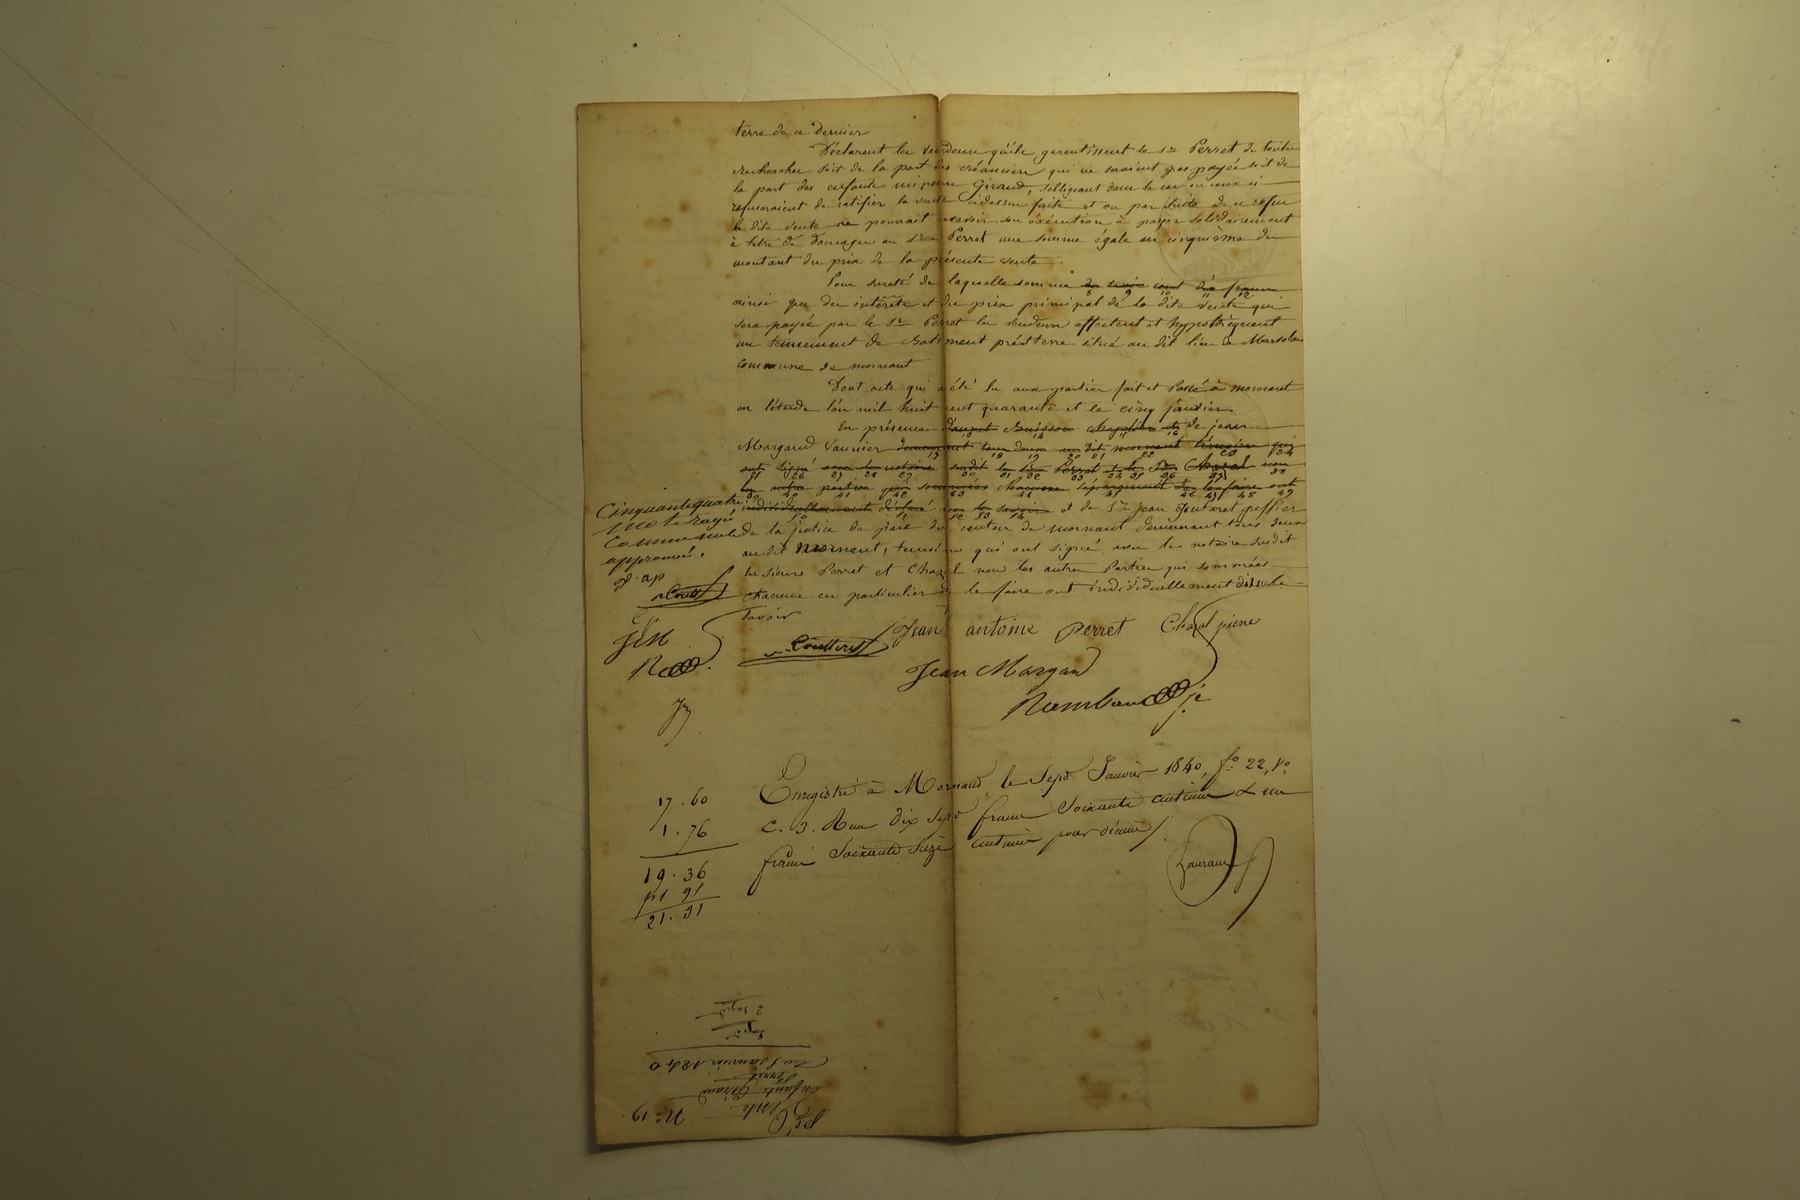 terre de ce Dernier
Déclarent les vendeurs qu'ils garentissent le sr Perret de toutes
recherches soit de la part des créanciers qui ne seraient pas payés soit de
la part des enfants mineurs Giraud, sobligeant dans le cas ou ceux ci
refuseraient de ratifier la vente cidessus faite et ou par suite de ce refus
la dite vente ne pourrait recevoir son éxécution à payer solidairement
à titre de domages au sr Perret une somme égale au cinquième du
montant du prix de la présente vente
Pour sureté de laquelle somme de trois cent dix francs
ainsi que des intérêts et du prix principal de la dite vente qui
sera payée par le sr Perret les vendeurs affectent et hypothèquent
un tennement de Batiment prés et terre situé au dit lieu de
commune de mornant
Dont acte qui a été lu aux parties fait et Passé à mornant
en l'étude l'an mil huit cent quarante et le cinq janvier
En présence de jean
Margaud demeurant tous deux au dit mornant témoins qui
ont signé avec le notaire susdit le sr Perret et le Sr Chazal non
les autres parties qui sommées chacune séparément de le faire ont
individuellement déclaré ne le savoir et de Sr jean greffier
de la justice de paix du canton de mornant demeurant tous deux
au dit mornant, temoins qui ont signé avec le notaire susdit
les sieurs Perret et Chazal non les autres Parties qui sommées
chacune en particulier de le faire ont individuellement dit ne le
savoir
Cinquantequatre
mots rayés
comme nuls
approuvés.
Jean antoine Perret Chazal pierre
Jean Margaud
Enregistré à Mornant, le Sept Janvier 1840, fo 22, Vo
C. 3. Reçu dix Sept francs Soixante centimes & un
franc Soixante Seize centimes pour décime
17.60
1.76
19.36
21.31
No 19
Vente
enfants Giraud
Perret
Du 5 Janvier 1840